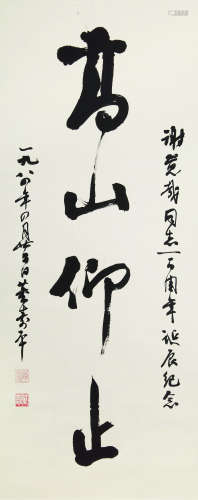 谢觉哉同志一百周年诞辰纪念
高山仰止
一九八四年四月日董寿平